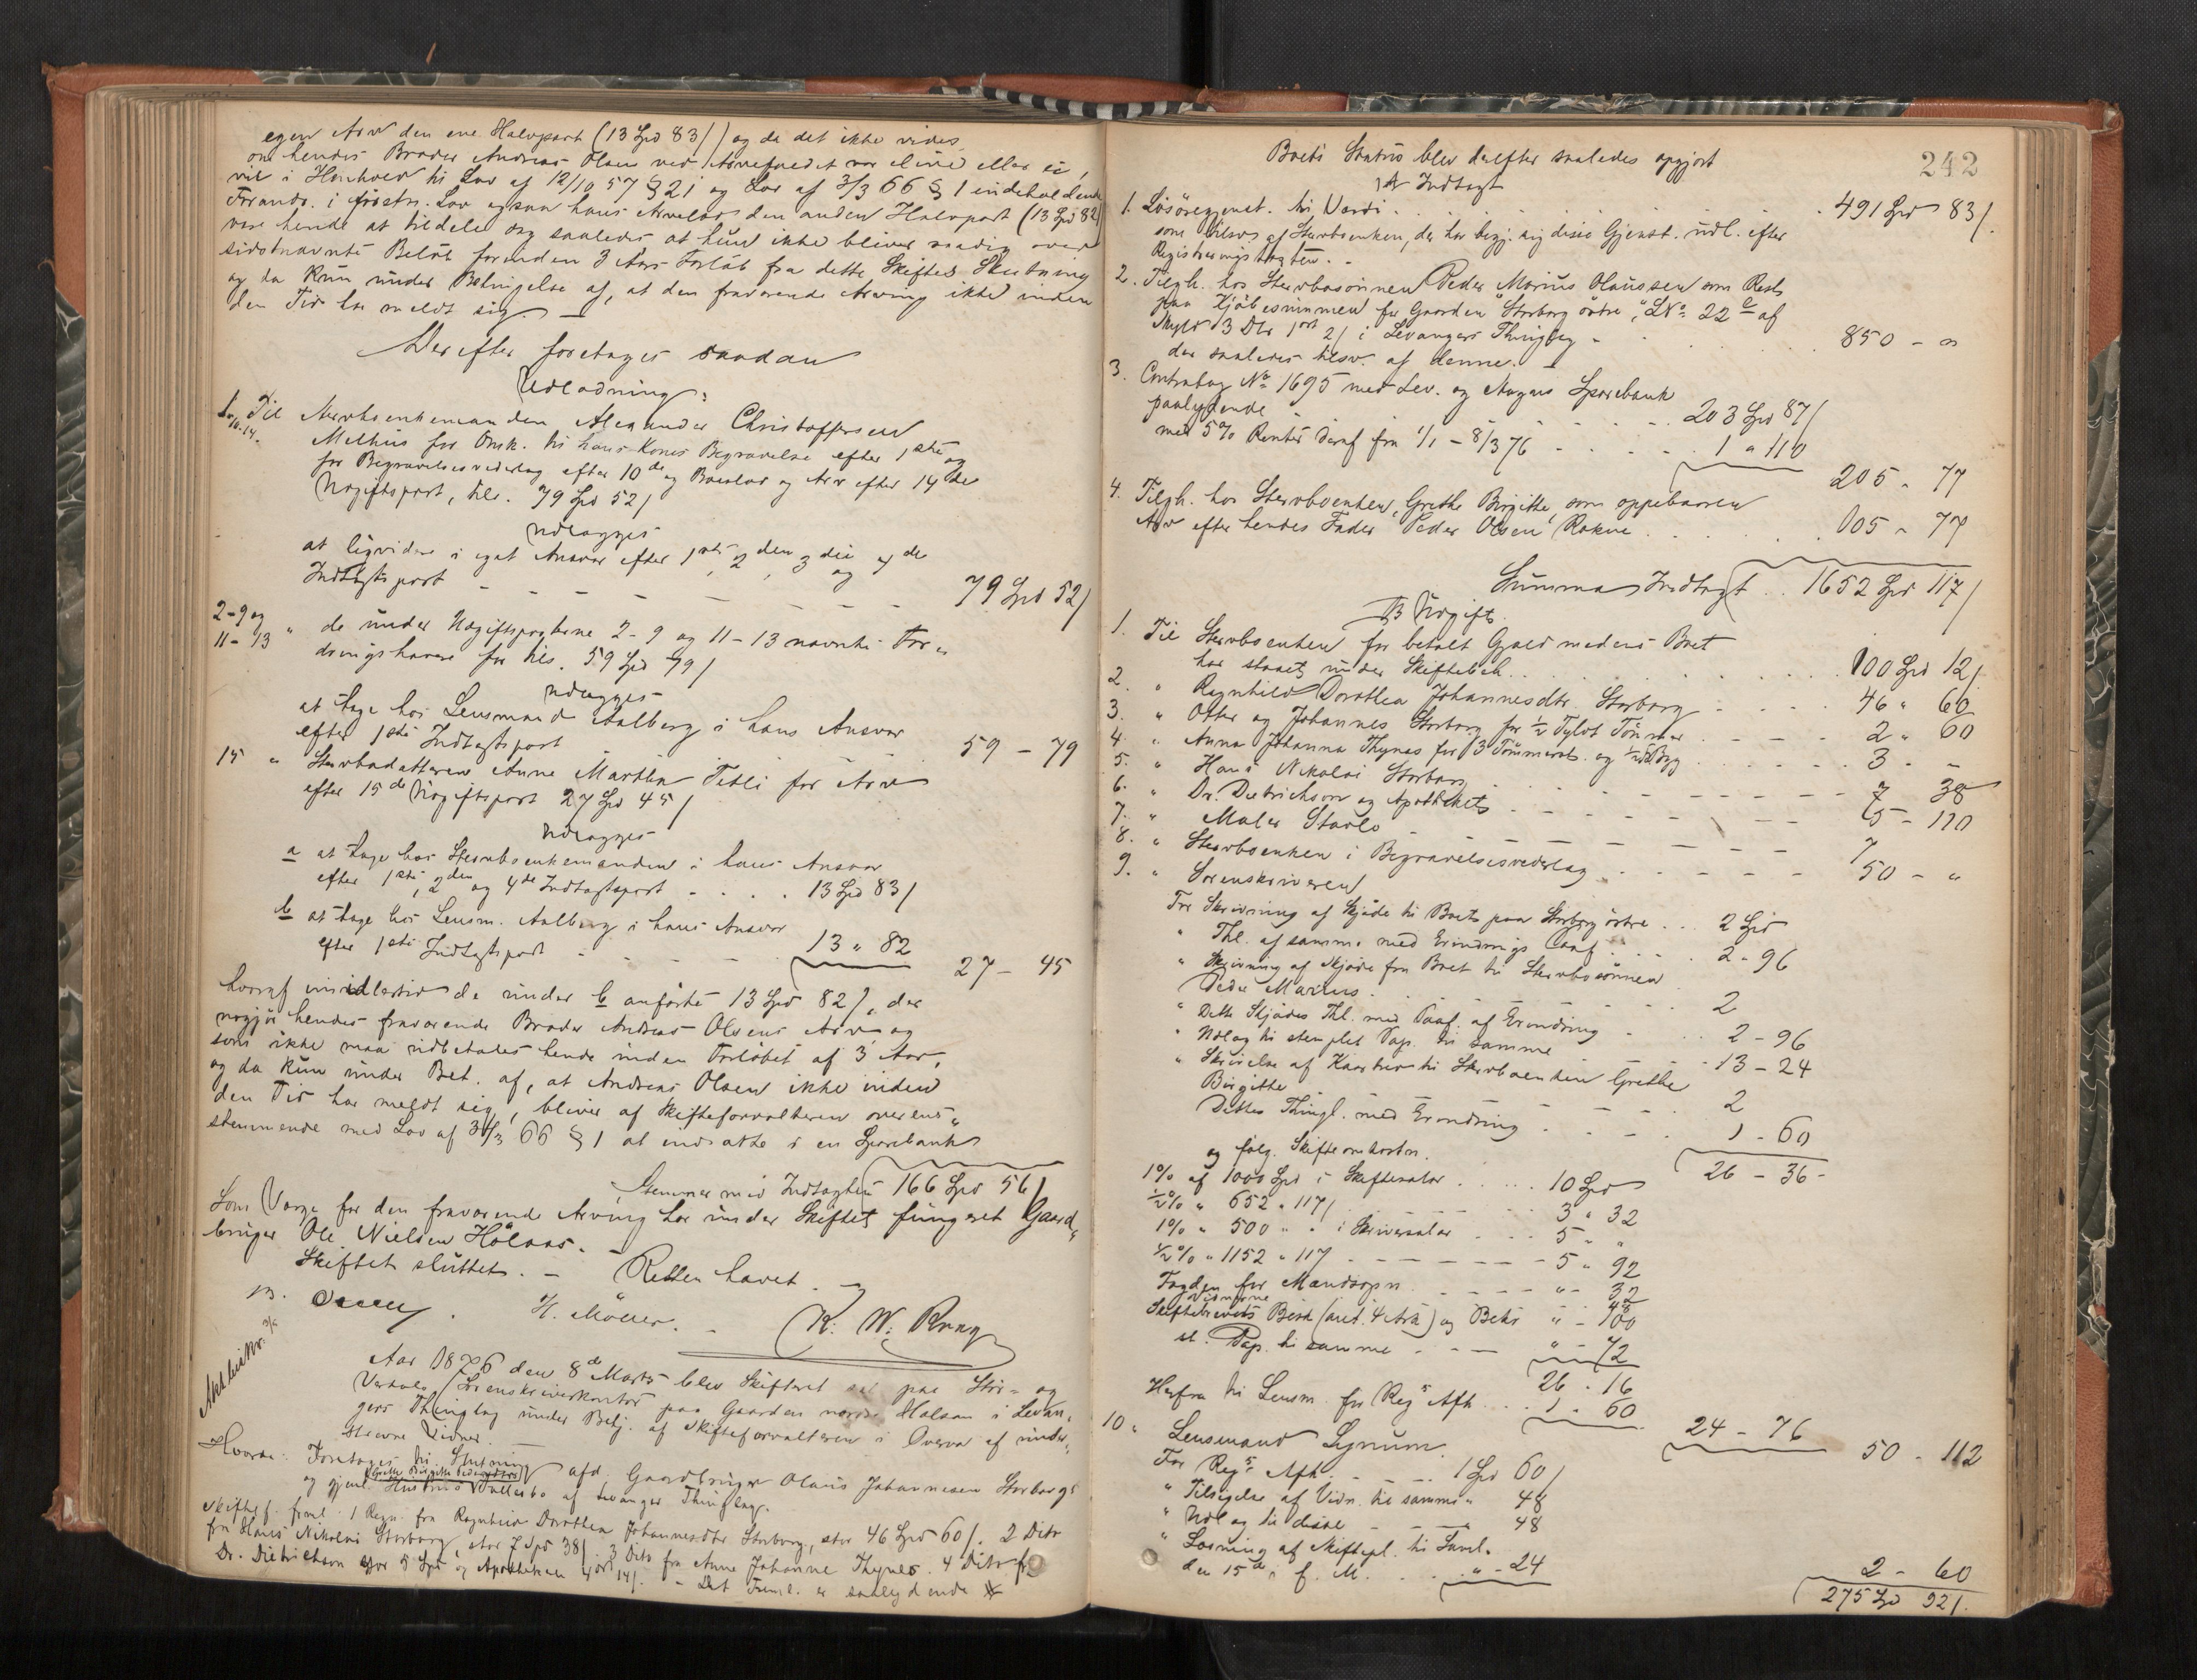 egen Arv den ene Halvpart (13 Spd 83/) og da det ikke vides
om hendes Broder Andreas Olsen ved Arvefaldet var ilive eller ei,
vil i Henhold til Lov af 12/10 57 § 21 og Lov af 3/3 66 § 1 indeholdende
Forandr. i förstn. Lov ogsaa hans Arvelod den anden Halvpart (13 Spd 82/)
være hende at tildele og saaledes at hun ikke bliver raadig over
sidstnævnte Beløb forinden 3 Aars Forløb fra dette Skiftes Slutning
og da kun under Betingelse af, at den fraværende Arving ikke inden
den Tid har meldt sig. —
Derefter foretages saadan
Udlodning:
1. 10. 14. Til Stervboenkemanden Alexander Christoffersen
Melhus for Omk. til hans Kones Begravelse efter 1ste og
for Begravelsesvederlag efter 10de og Boeslod og Arv efter 14de
Udgiftspost, tils. 79 Spd 52/
udlægges
at liqvidere i eget Ansvar efter 1ste, 2den, 3die og 4de
Indtægtspost - - - - - - - 79 Spd 52/
2-9 og 11-13 " de under Udgiftsposterne 2-9 og 11-13 nævnte For-
dringshavere for tils. 59 Spd 79/
udlægges
at tage hos Lensmand Aalberg i hans Ansvar
efter 1ste Indtægtspost 59 - 79
15 " Stervbodatteren Anne Martha Tetli for Arv
efter 15de Udgiftspost 27 Spd 45/
udlægges
a at tage hos Stervboenkemanden i hans Ansvar
efter 1ste, 2den og 4de Indtægtspost - . . . 13 Spd 83/
b at tage hos Lensm. Aalberg i hans Ansvar
efter 1ste Indtægtspost - - - - 13 " 82
27 - 45
hvoraf imidlertid de under b anførte 13 Spd 82/, der
udgjør hendes fraværende Broder Andreas Olsens Arv og
som ikke maa udbetales hende inden Forløbet af 3 Aar,
og da kun under Bet. af, at Andreas Olsen ikke inden
den Tid har meldt sig, bliver af Skifteforvalteren overens-
stemmende med Lov af 3/3 66 § 1 at indsætte i en Sparebank
Stemmer med Indtægten 166 Spd 56/
Som Værge for den fraværende Arving har under Skiftet fungeret Gaard-
bruger Ole Nielsen Hölaas. —
Skiftet sluttet. — Retten hævet. —
H. Möller. — K. W. Krog
Aar 1876 den 8de Marts blev Skifteret sat paa Stör- og
Værdals Sorenskriverkontor paa Gaarden nordre Halsan i Levan-
gers Thinglag under Betj. af Skifteforvalteren i Overvær af under-
skrevne Vidner. —
Hvorda: Foretages til Slutning afd. Gaardbruger Olaus Johannesen Storborgs
og gjenl. Hustrus Grethe Birgitte Pedersdatters Fællesbo af Levanger Thinglag.
Skiftef. freml. 1 Regn. fra Ragnhild Dorothea Johannesdtr Storborg, stor 46 Spd 60/. 2 Dito
fra Hans Nikolai Storborg, stor 7 Spd 38/. 3 Dito fra Anne Johanne Thynes. 4 Dito fra
Dr. Dietrichson stor 5 Spd og Apotheken 4 ort 14/. - Det Freml. er saalydende
242
Boets Status blev derefter saaledes opgjort
A Indtægt
1. Løsøregjenst. til Værdi . . . . . . . 491 Spd 83/.
som tilsvares af Stervboenken, der har begj. sig disse Gjenst. udl. efter
Registreringstaxten. -
2. Tilgh. hos Stervbosønnen Peder Marius Olaussen som Rest
paa Kjøbesummen for Gaarden "Storborg övre", L No 22 a af
Skyld 3 Dlr 1 ort 2/ i Levangers Thinglag - . . . . . 850 - "
der saaledes tilsv. af denne. —
3. Contrabog No 1695 med Lev. og Skognes Sparebank
paalydende - - - - - . . 203 Spd 87/
med 5% Renter deraf fra 1/1 - 8/3 76 - . . . . . 1 " 110
205 " 77
4. Tilgh. hos Stervboenken, Grethe Birgitte, som oppebaaren
Arv efter hendes Fader Peder Olsen Rokne . . . . . . 105 " 77
Summa Indtægt . . 1652 Spd 117/
B Udgift.
1. Til Stervboenken for betalt Gjæld medens Boet
har staaet under Skiftebeh. . . . . . . . . . 100 Spd 12/
2. " Ragnhild Dorothea Johannesdtr. Storborg - . . . 46 " 60
3. " Otter og Johannes Storborg for 1/2 Tylvt Tömmer - - - 2 " 60
4. " Anna Johanna Thynes for 3 Tømmerst. og 1/2 Td Byg . . . . . . 3 . -
5. " Hans Nikolai Storborg - - - - - - - - 7 38
6. " Dr. Dietrichson og Apotheket . . . . . . . 5 - 110
7. " Maler Stavlo - - - - - - - 7
8. " Stervboenken i Begravelsesvederlag . . . . . . 50 - "
9. " Sorenskriveren
For Skrivning af Skjøde til Boet paa Storborg övre . . . 2 Spd
" Thl. af samme med Erindrings Paaf. . . . . 2 - 96
" Skrivning af Skjøde fra Boet til Stervbosønnen
Peder Marius . . . . . . . 2
" Dette Skjødes Thl. med Paaf. af Erindring . . . 2 - 96
" Udlæg til stemplet Pap. til samme - - - - - 13 - 24
" Skrivelse af Kaarbrev til Stervboenken Grethe
Birgitte - - - - - - - 2
Dettes Thingl. med Erindring . . . . . 1 - 60
26 - 36 -
og følg. Skifteomkostn.
1% af 1000 Spd i Skiftesalær . . . . . 10 Spd
1/2% " 652 " 117/ . . . . . . . 3 " 32
1% " 500 " " i Skriversalær . . . 5 " "
1/2% " 1152 " 117 - - - - - - - 5 " 92
Fogden for Mandsopn. - - - - - " - 32
Vidnerne 48
Skiftebrevets Besk. (ant. 4 Ark) og Bekr " - 100
st. Pap. til samme - - - " - 72
26 . 16
Herfra til Lensm. for Regs Afh. . . 1 - 60
24 - 76
50 - 112
10 " Lensmand Lynum
For Regs Afh. - - - - 1 Spd 60/
" Tilsigelse af Vidn. til samme " 48
" Udlæg til disse - - - 48
" Læsning af Skifteopl. til Samel.
den 15de f. M. . . . . " - 24
2 - 60
275 Spd 92/.